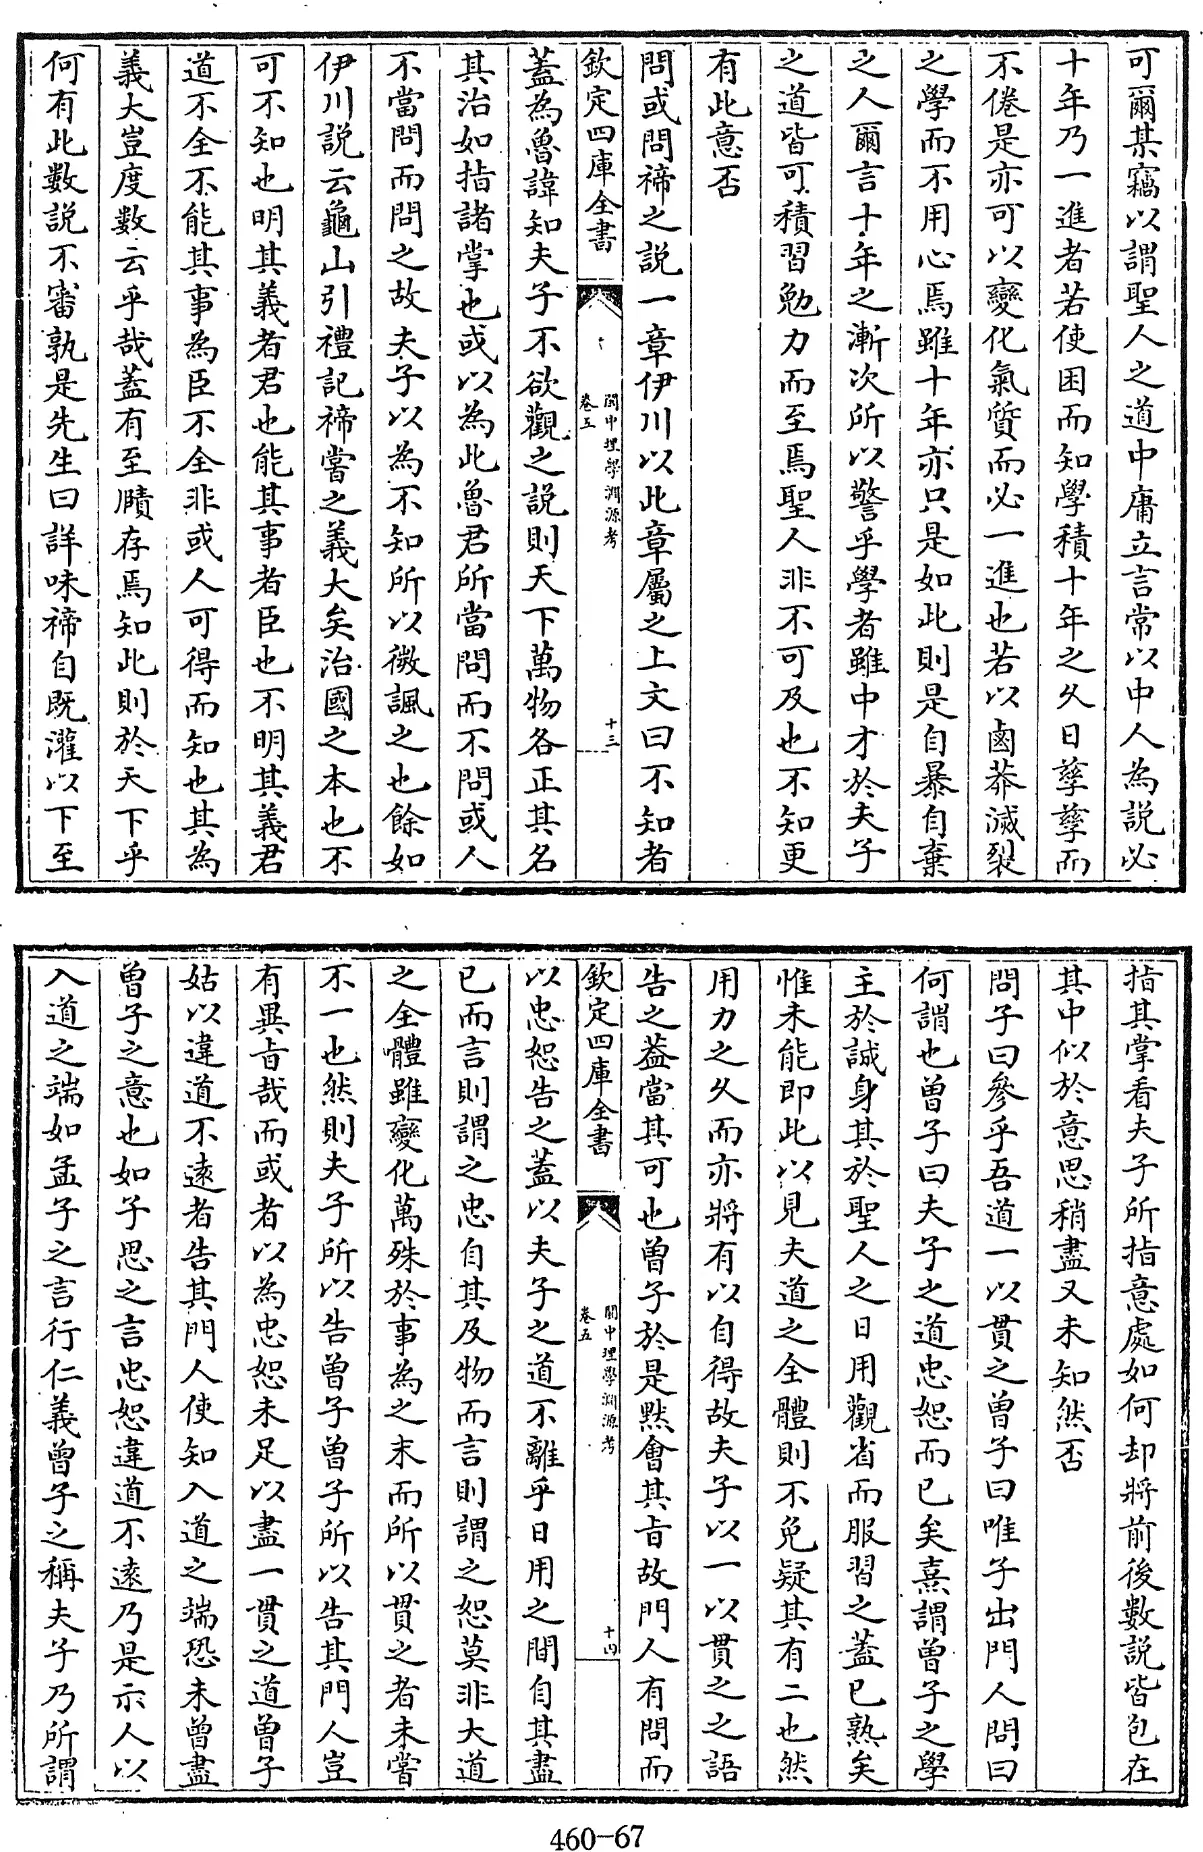 可爾某竊以謂聖人之道中庸立言常以中人為説必
十年乃一進者若使困而知學積十年之久日孳孳而
不倦是亦可以變化氣質而必一進也若以鹵莽滅裂
之學而不用心焉雖十年亦只是如此則是自暴自棄
之人爾言十年之漸次所以警乎學者雖中才於夫子
之道皆可積習勉力而至焉聖人非不可及也不知更
有此意否
問或問禘之説一章伊川以此章屬之上文曰不知者
欽定四庫全書
閩中理學淵源考
卷五
十三
蓋為魯諱知夫子不欲觀之説則天下萬物各正其名
其治如指諸掌也或以為此魯君所當問而不問或人
不當問而問之故夫子以為不知所以微諷之也餘如
伊川説云龜山引禮記禘嘗之義大矣治國之本也不
可不知也明其義者君也能其事者臣也不明其義君
道不全不能其事為臣不全非或人可得而知也其為
義大豈度數云乎哉蓋有至賾存焉知此則於天下乎
何有此數説不審孰是先生曰詳味禘自既灌以下至
指其掌看夫子所指意處如何却將前後數説皆包在
其中似於意思稍盡又未知然否
問子曰參乎吾道一以貫之曾子曰唯子出門人問曰
何謂也曾子曰夫子之道忠恕而已矣熹謂曾子之學
主於誠身其於聖人之日用觀省而服習之蓋已熟矣
惟未能即此以見夫道之全體則不免疑其有二也然
用力之久而亦將有以自得故夫子以一以貫之之語
告之蓋當其可也曾子於是黙會其㫖故門人有問而
欽定四庫全書
閩中理學淵源考
卷五
十四
以忠恕告之蓋以夫子之道不離乎日用之間自其盡
已而言則謂之忠自其及物而言則謂之恕莫非大道
之全體雖變化萬殊於事為之末而所以貫之者未嘗
不一也然則夫子所以告曾子曾子所以告其門人豈
有異㫖哉而或者以為忠恕未足以盡一貫之道曾子
姑以違道不逺者告其門人使知入道之端恐未曾盡
曾子之意也如子思之言忠恕違道不逺乃是示人以
入道之端如孟子之言行仁義曾子之稱夫子乃所謂
460-67